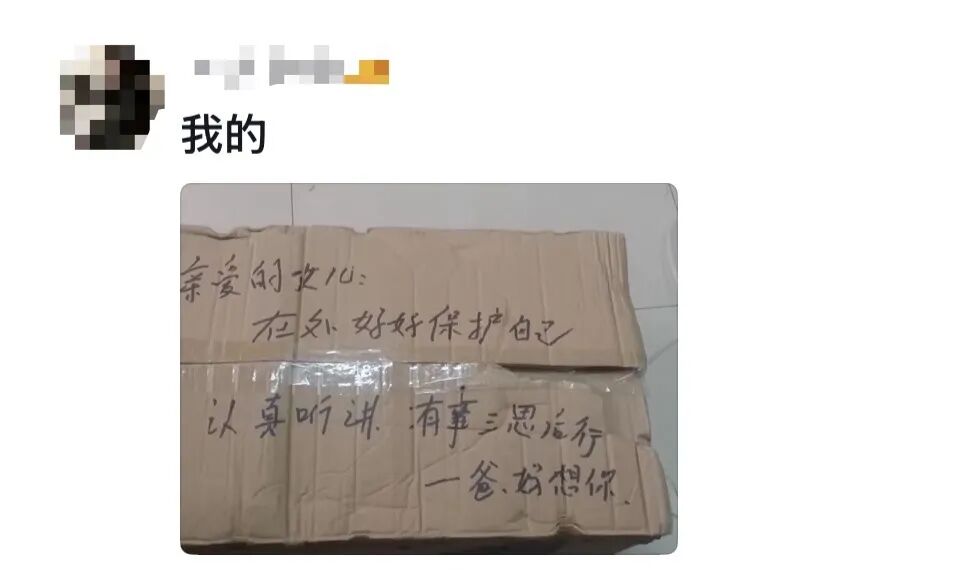 我的
亲爱的女儿:
在外好好保护自己
认真听讲.有事三思后行
一爸.好想你.